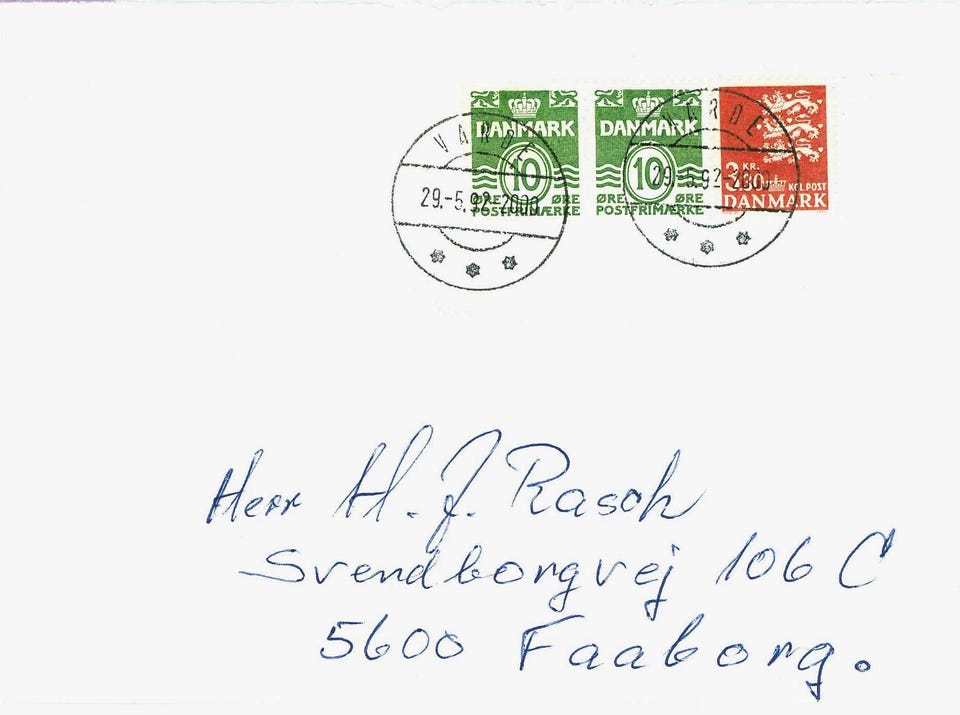 VARDE
29.-5.92-2000
DANMARK
10
ØRE ØRE
POSTFRIMÆRKE
DANMARK
10
ØRE ØRE
POSTFRIMÆRKE
VARDE
29.-5.92-2000
KR.
KGL POST
DANMARK
Herr H. J. Rasch
Svendborgvej 106 C
5600 Faaborg.